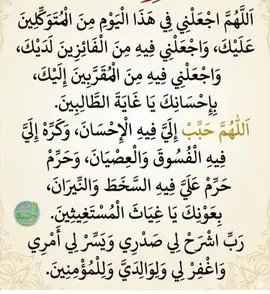 اَللَّهُمَّ اجْعَلْنِي فِي هَذَا الْيَوْمِ مِنَ الْمُتَوَكِّلِينَ
عَلَيْكَ، وَاجْعَلْنِي فِيهِ مِنَ الْفَائِزِينَ لَدَيْكَ،
وَاجْعَلْنِي فِيهِ مِنَ الْمُقَرَّبِينَ إِلَيْكَ،
بِإِحْسَانِكَ يَا غَايَةَ الطَّالِبِينَ.
اَللّٰهُمَّ حَبِّبْ إِلَيَّ فِيهِ الْإِحْسَانَ، وَكَرِّهْ إِلَيَّ
فِيهِ الْفُسُوقَ وَالْعِصْيَانَ، وَحَرِّمْ
حَرِّمْ عَلَيَّ فِيهِ السَّخَطَ وَالنِّيرَانَ،
بِعَوْنِكَ يَا غِيَاثَ الْمُسْتَغِيثِينَ.
رَبِّ اشْرَحْ لِي صَدْرِي وَيَسِّرْ لِي أَمْرِي
وَاغْفِرْ لِي وَلِوَالِدَيَّ وَلِلْمُؤْمِنِينَ.